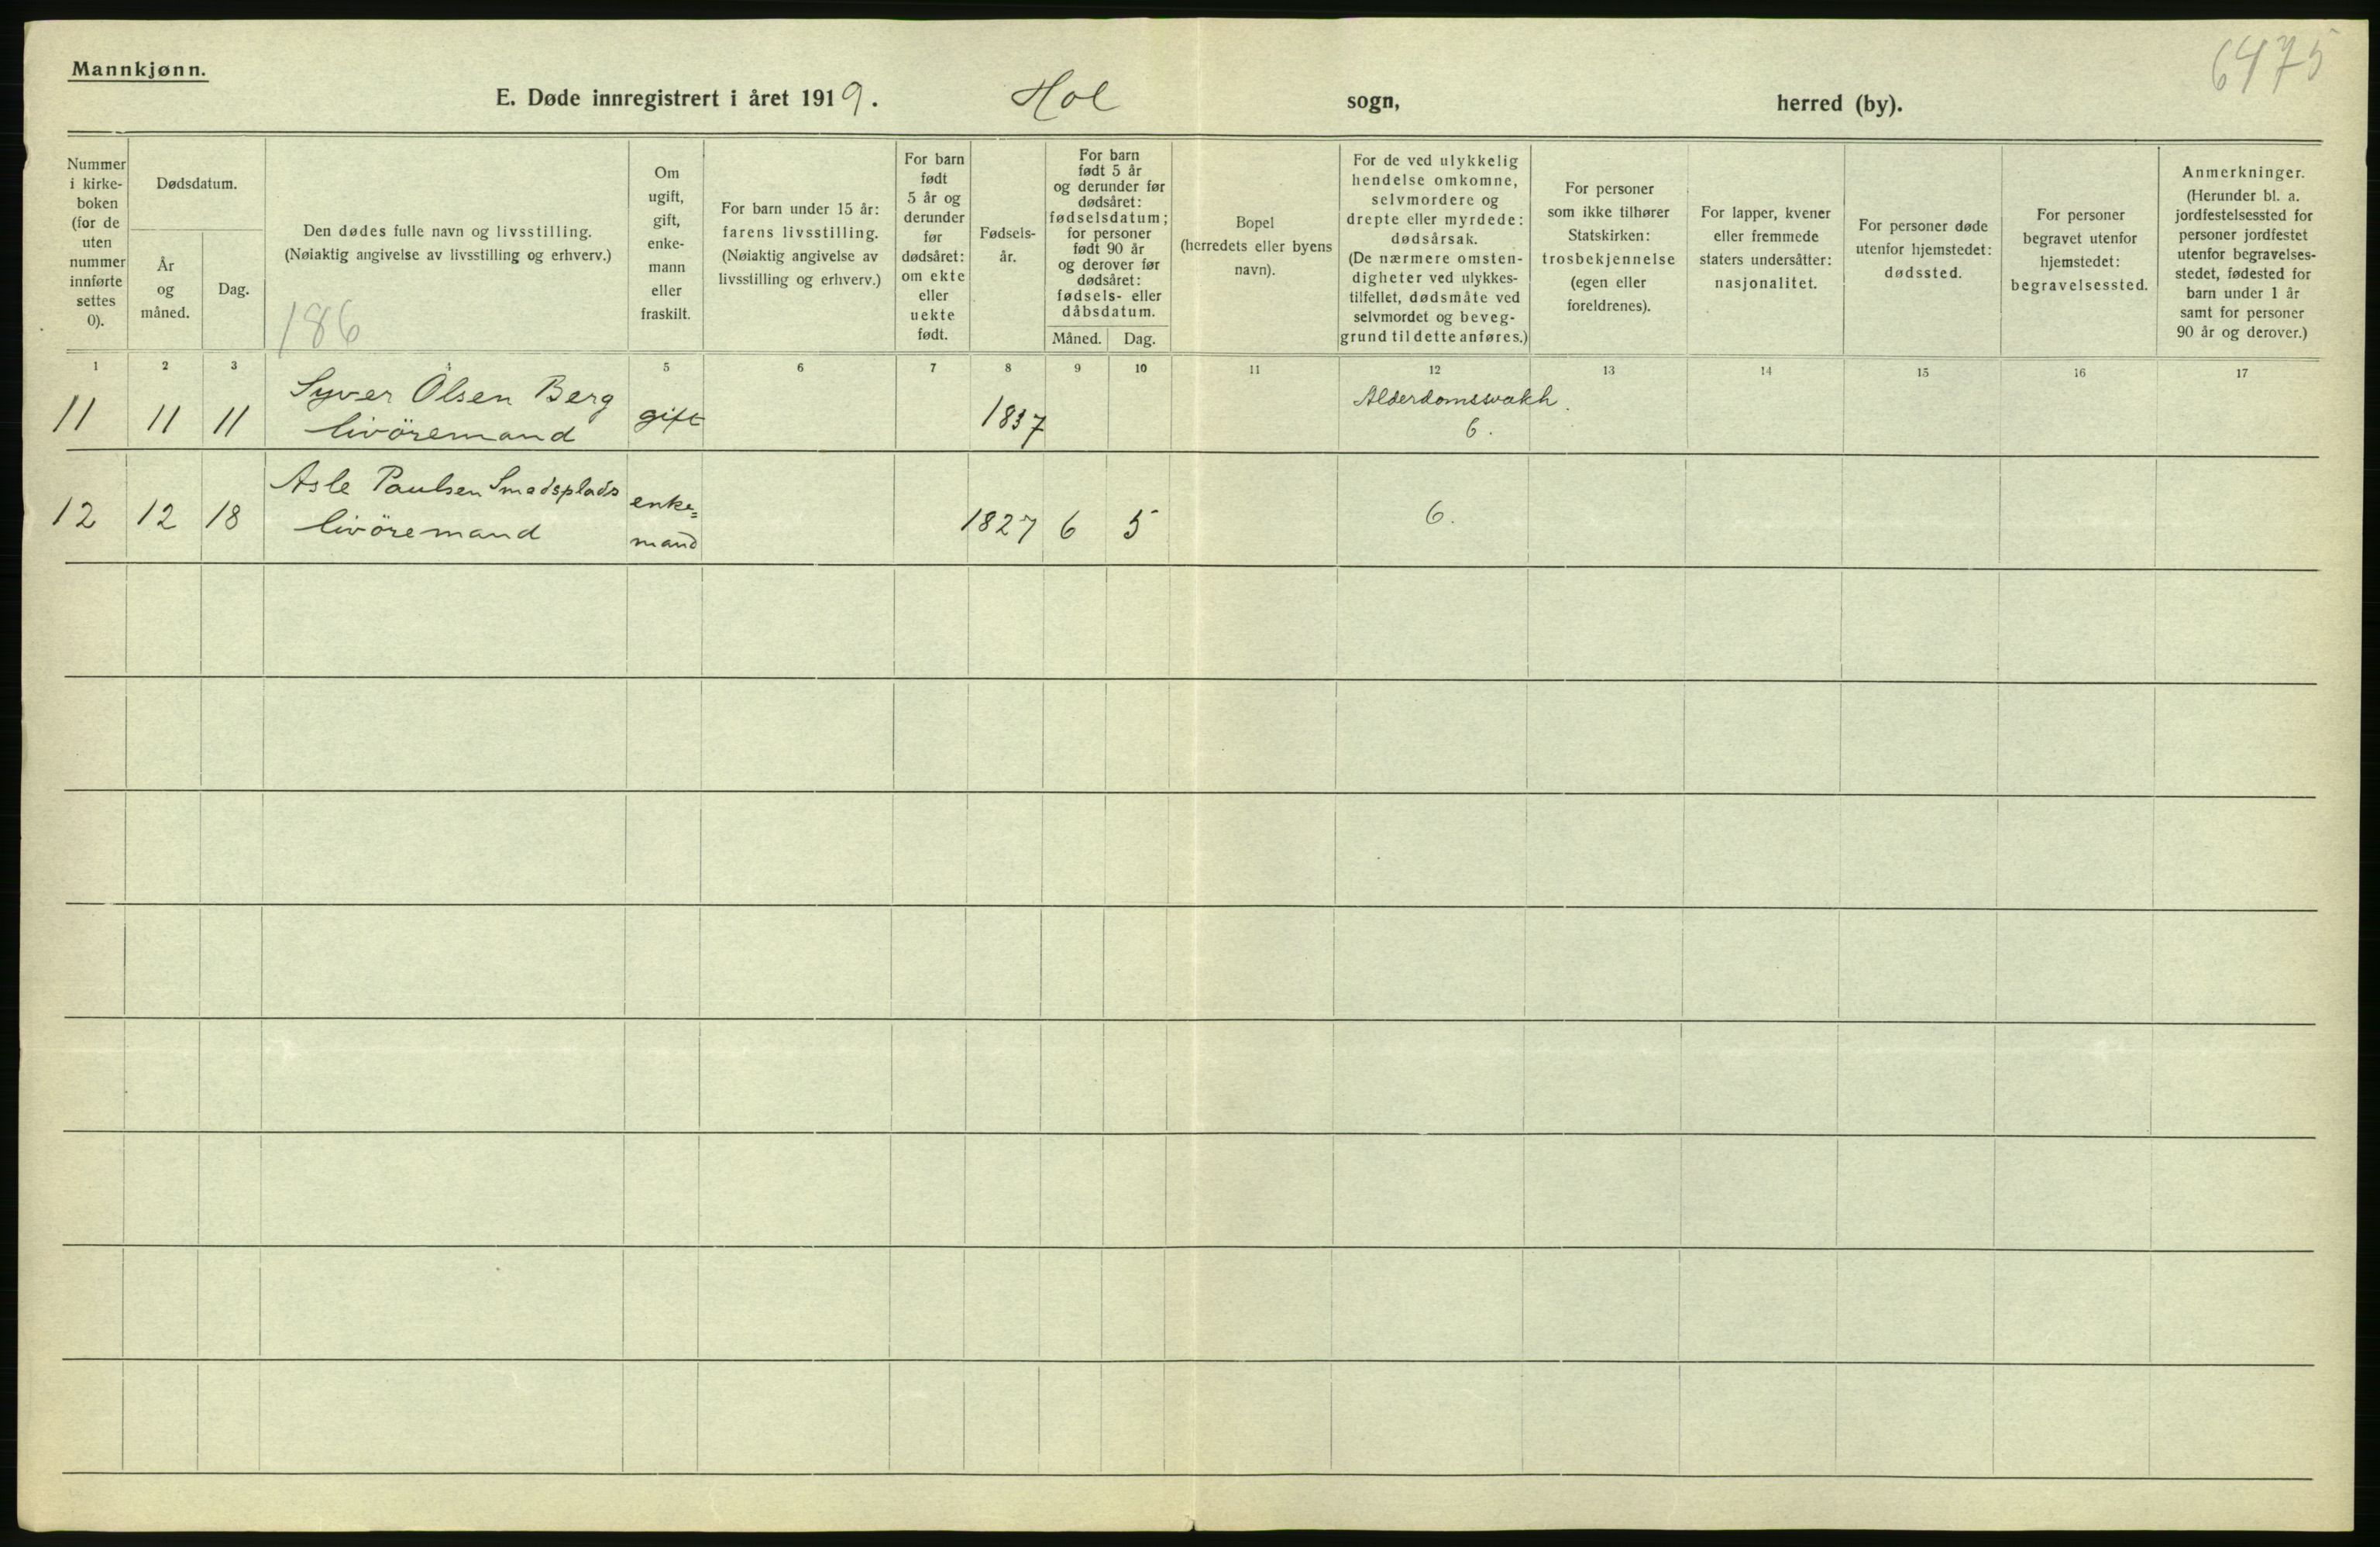 Mannkjønn.
6475
E. Døde innregistrert i året 1919. Hol sogn, herred (by).
Nummer i kirke-boken (for de uten nummer innførte settes 0).
Dødsdatum.
År og måned.
Dag.
Den dødes fulle navn og livsstilling.
(Nøiaktig angivelse av livsstilling og erhverv.)
186
Om ugift, gift, enke-mann eller fraskilt.
For barn under 15 år:
farens livsstilling.
(Nøiaktig angivelse av
livsstilling og erhverv.)
For barn født 5 år og derunder før dødsåret: om ekte eller uekte født.
Fødsels-
år.
For barn
født 5 år
og derunder før
dødsåret:
fødselsdatum;
for personer
født 90 år
og derover før
dødsåret:
fødsels- eller
dåbsdatum.
Måned. Dag.
Bopel
(herredets eller byens
navn).
For de ved ulykkelig
hendelse omkomne,
selvmordere og
drepte eller myrdede:
dødsårsak.
(De nærmere omsten-
digheter ved ulykkes-
tilfellet, dødsmåte ved
selvmordet og beveg-
grund til dette anføres.)
For personer
som ikke tilhører
Statskirken:
trosbekjennelse
(egen eller
foreldrenes).
For lapper, kvener
eller fremmede
staters undersåtter:
nasjonalitet.
For personer døde
utenfor hjemstedet:
dødssted.
For personer
begravet utenfor
hjemstedet:
begravelsessted.
Anmerkninger.
(Herunder bl. a.
jordfestelsessted for
personer jordfestet
utenfor begravelses-
stedet, fødested for
barn under 1 år
samt for personer
90 år og derover.)
1 2 3 4 5 6 7 8 9 10 11 12 13 14 15 16 17
11 11 11 Syver Olsen Berg gift 1837 Alderdomssvakh.
livöremand 6.
12 12 18 Asle Paulsen Smedsplads enke= 1827 6 5 6.
livöremand mand